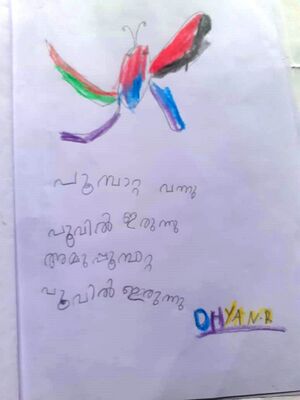 പൂമ്പാറ്റ വന്നു
പൂവിൽ ഇരുന്നു
അമ്മുപ്പൂമ്പാറ്റ
പൂവിൽ ഇരുന്നു
DHYAN.R